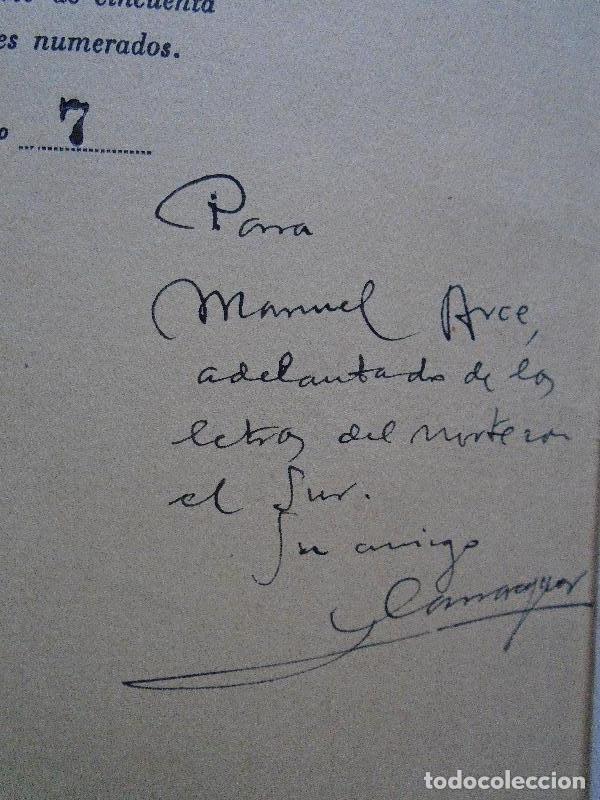 de cincuenta
es numerados.
o 7
Para
Manuel Arce,
adelantado de las
letras del norte en
el Sur.
Su amigo
todocoleccion.net